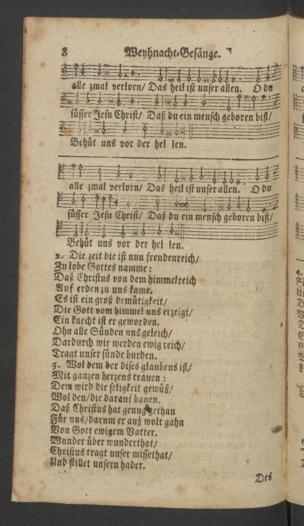 8 Weyhnacht-Gesänge.
alle zmal verlorn/ Das heil ist unser allen. O du
süsser Jesu Christ/ Daß du ein mensch geboren bist/
Behüt uns vor der hel len.
alle zmal verlorn/ Das heil ist unser allen. O du
süsser Jesu Christ/ Daß du ein mensch geboren bist/
Behüt uns vor der hel len.
2. Die zeit die ist nun freudenreich/
Zu lobe Gottes namme:
Daß Christus von dem himmelreich
Auf erden zu uns kame.
Es ist ein groß demütigkeit/
Die Gott vom himmel uns erzeigt/
Ein knecht ist er geworden.
Ohn alle Sünden uns geleich/
Dardurch wir werden ewig reich/
Tragt unser sünde burden.
3. Wol dem der dises glaubens ist/
Mit ganzen herzens trauen:
Dem wird die seligkeit gewüß/
Wol den/die darauf bauen.
Daß Christus hat genug gethan
Für uns/darum er auß wolt gahn
Von Gott ewigem Vatter.
Wunder über wunderthat/
Christus tragt unser missethat/
Und stillet unsern hader.
Des